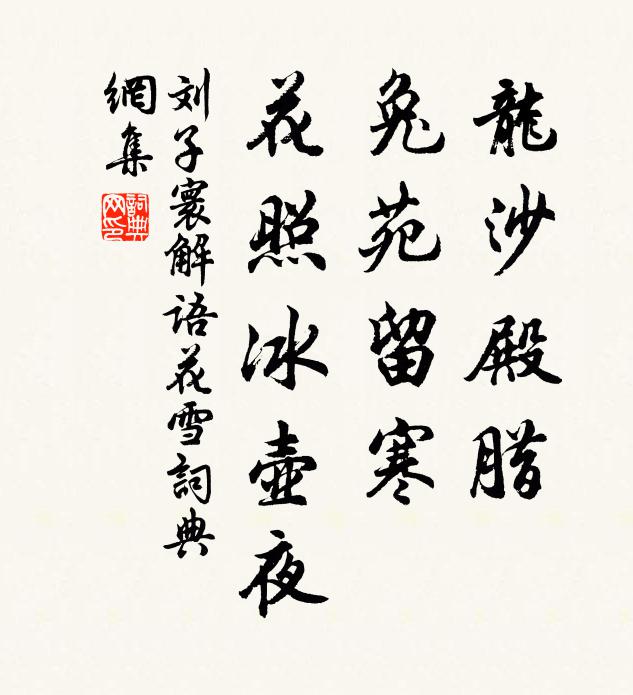 龍沙殿腊
兔苑留寒
花照冰壺夜
刘子寰解语花雪詞典
網集
詞典网印